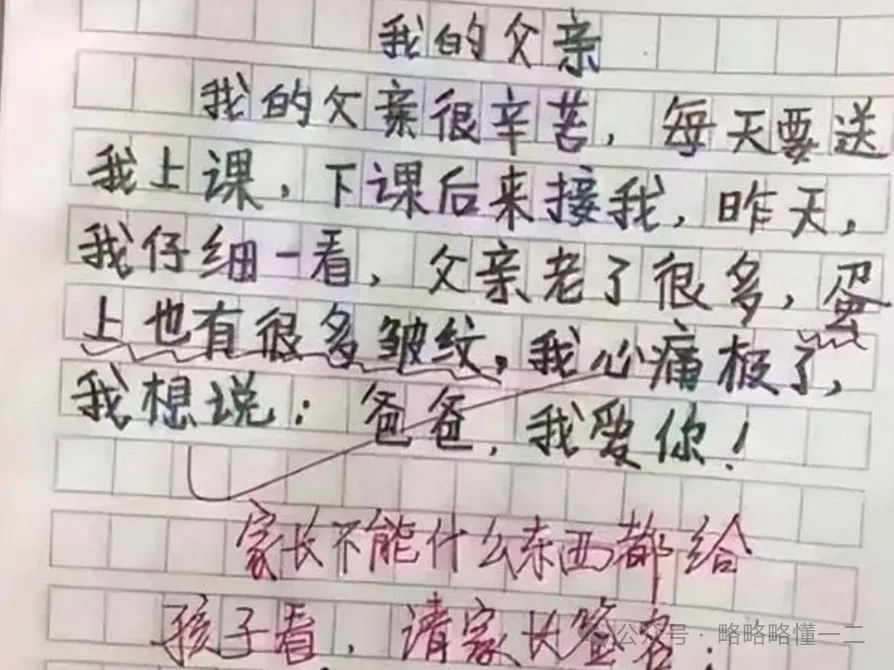 我的父亲
我的父亲很辛苦，每天要送
我上课，下课后来接我，昨天，
我仔细一看，父亲老了很多，蛋
上也有很多皱纹，我心痛极了，
我想说：爸爸，我爱你！
家长不能什么东西都给
孩子看，请家长签名：
公众号·略略略懂一二